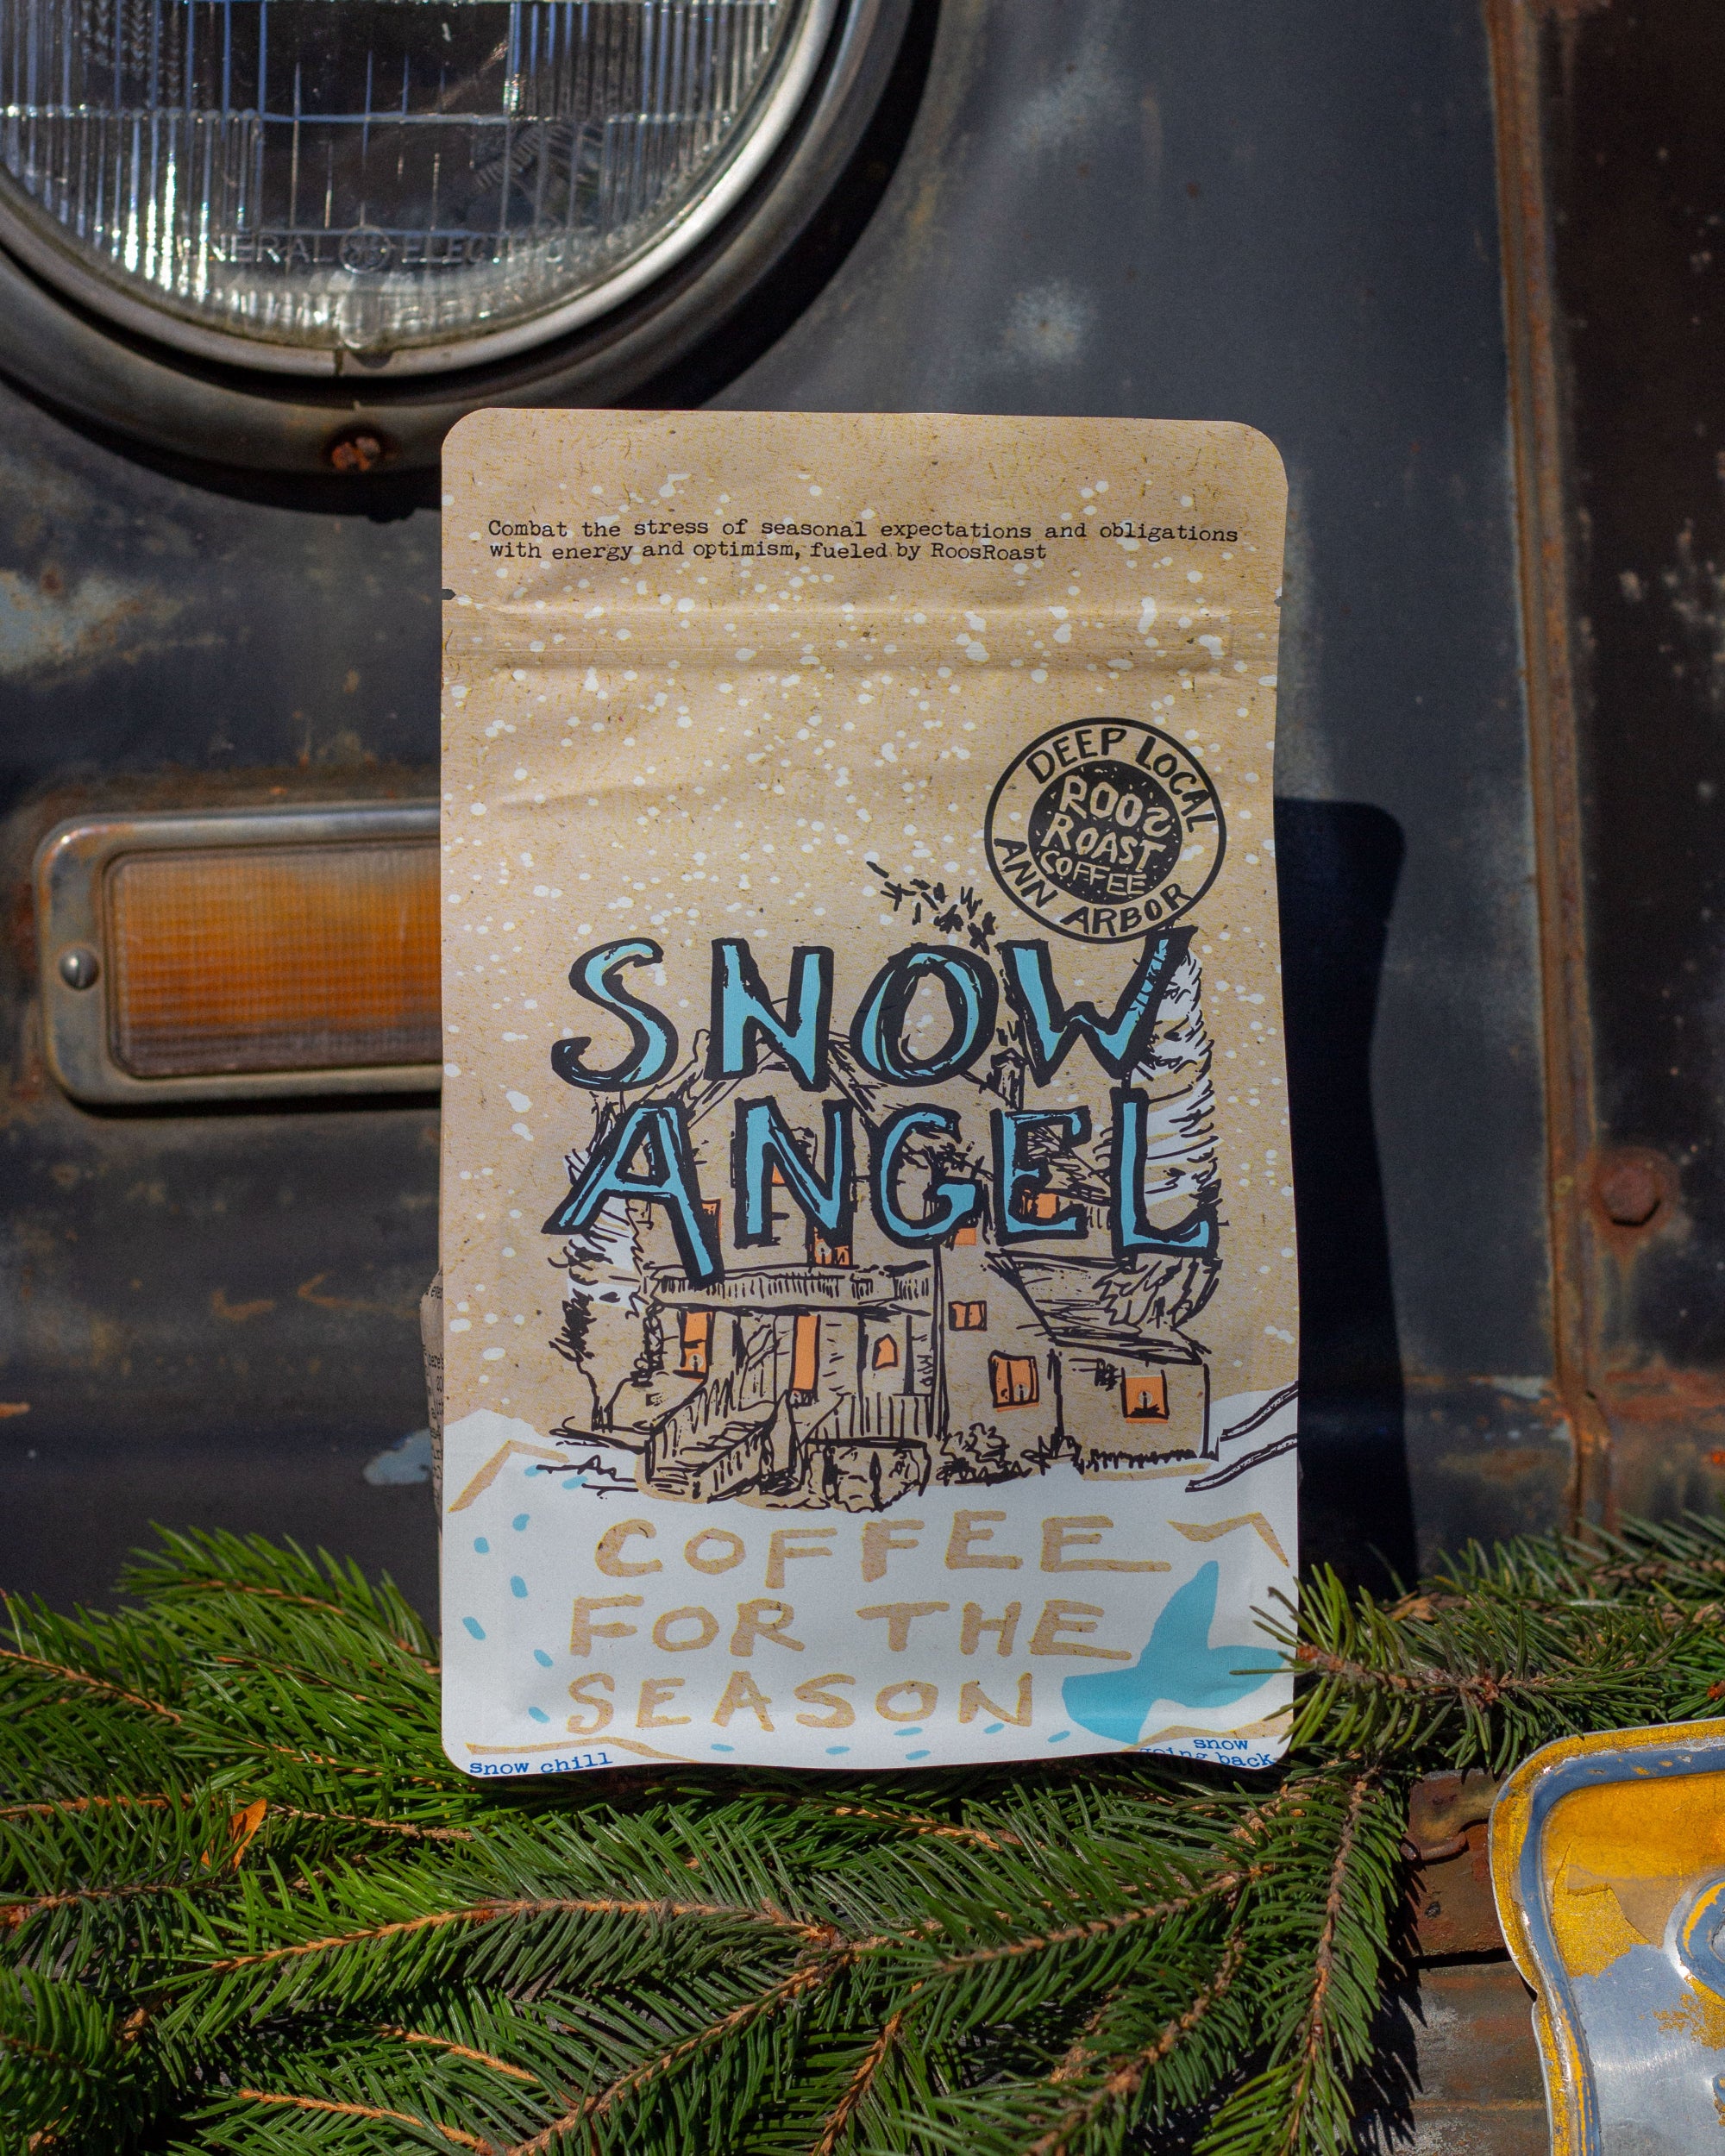 GENERAL GE ELECTRIC
Combat the stress of seasonal expectations and obligations
with energy and optimism, fueled by RoosRoast
DEEP LOCAL
ROOS
ROAST
COFFEE
ANN ARBOR
SNOW
ANGEL
COFFEE
FOR THE
SEASON
Snow chill
snow
going back